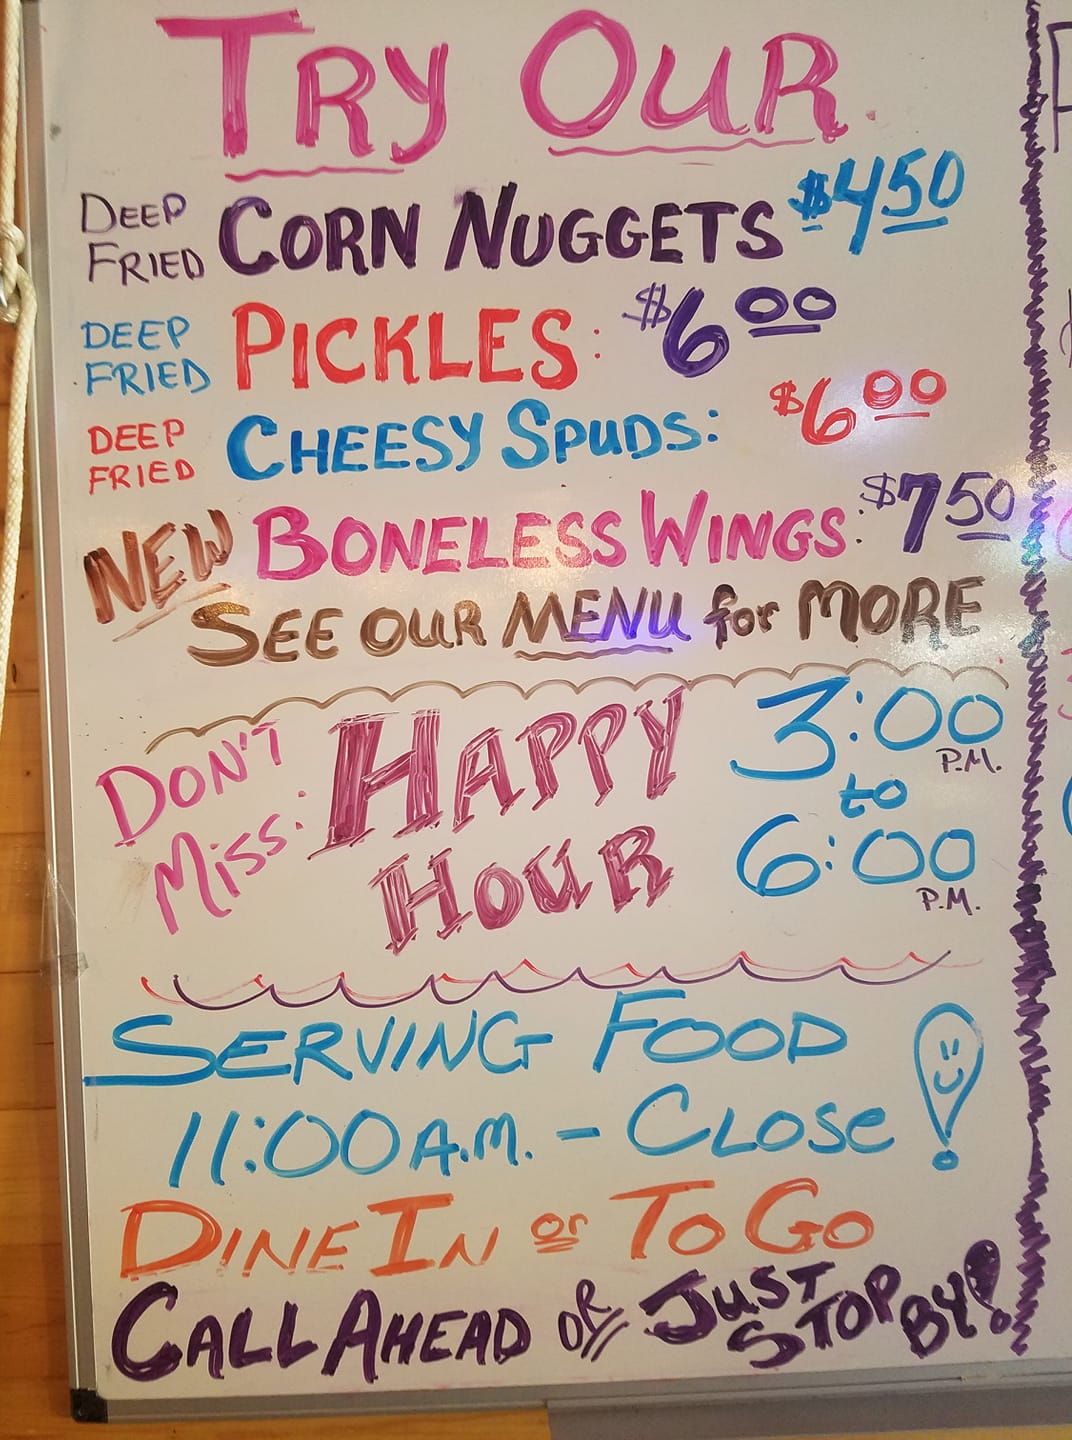 TRY OUR
DEEP FRIED CORN NUGGETS $4.50
DEEP FRIED PICKLES: $6.00
DEEP FRIED CHEESY SPUDS: $6.00
NEW BONELESS WINGS: $7.50
SEE OUR MENU for MORE
DON'T MISS: HAPPY HOUR 3:00 P.M. to 6:00 P.M.
SERVING FOOD
11:00 A.M. - CLOSE!
DINE IN or TO GO
CALL AHEAD OR JUST STOP BY!